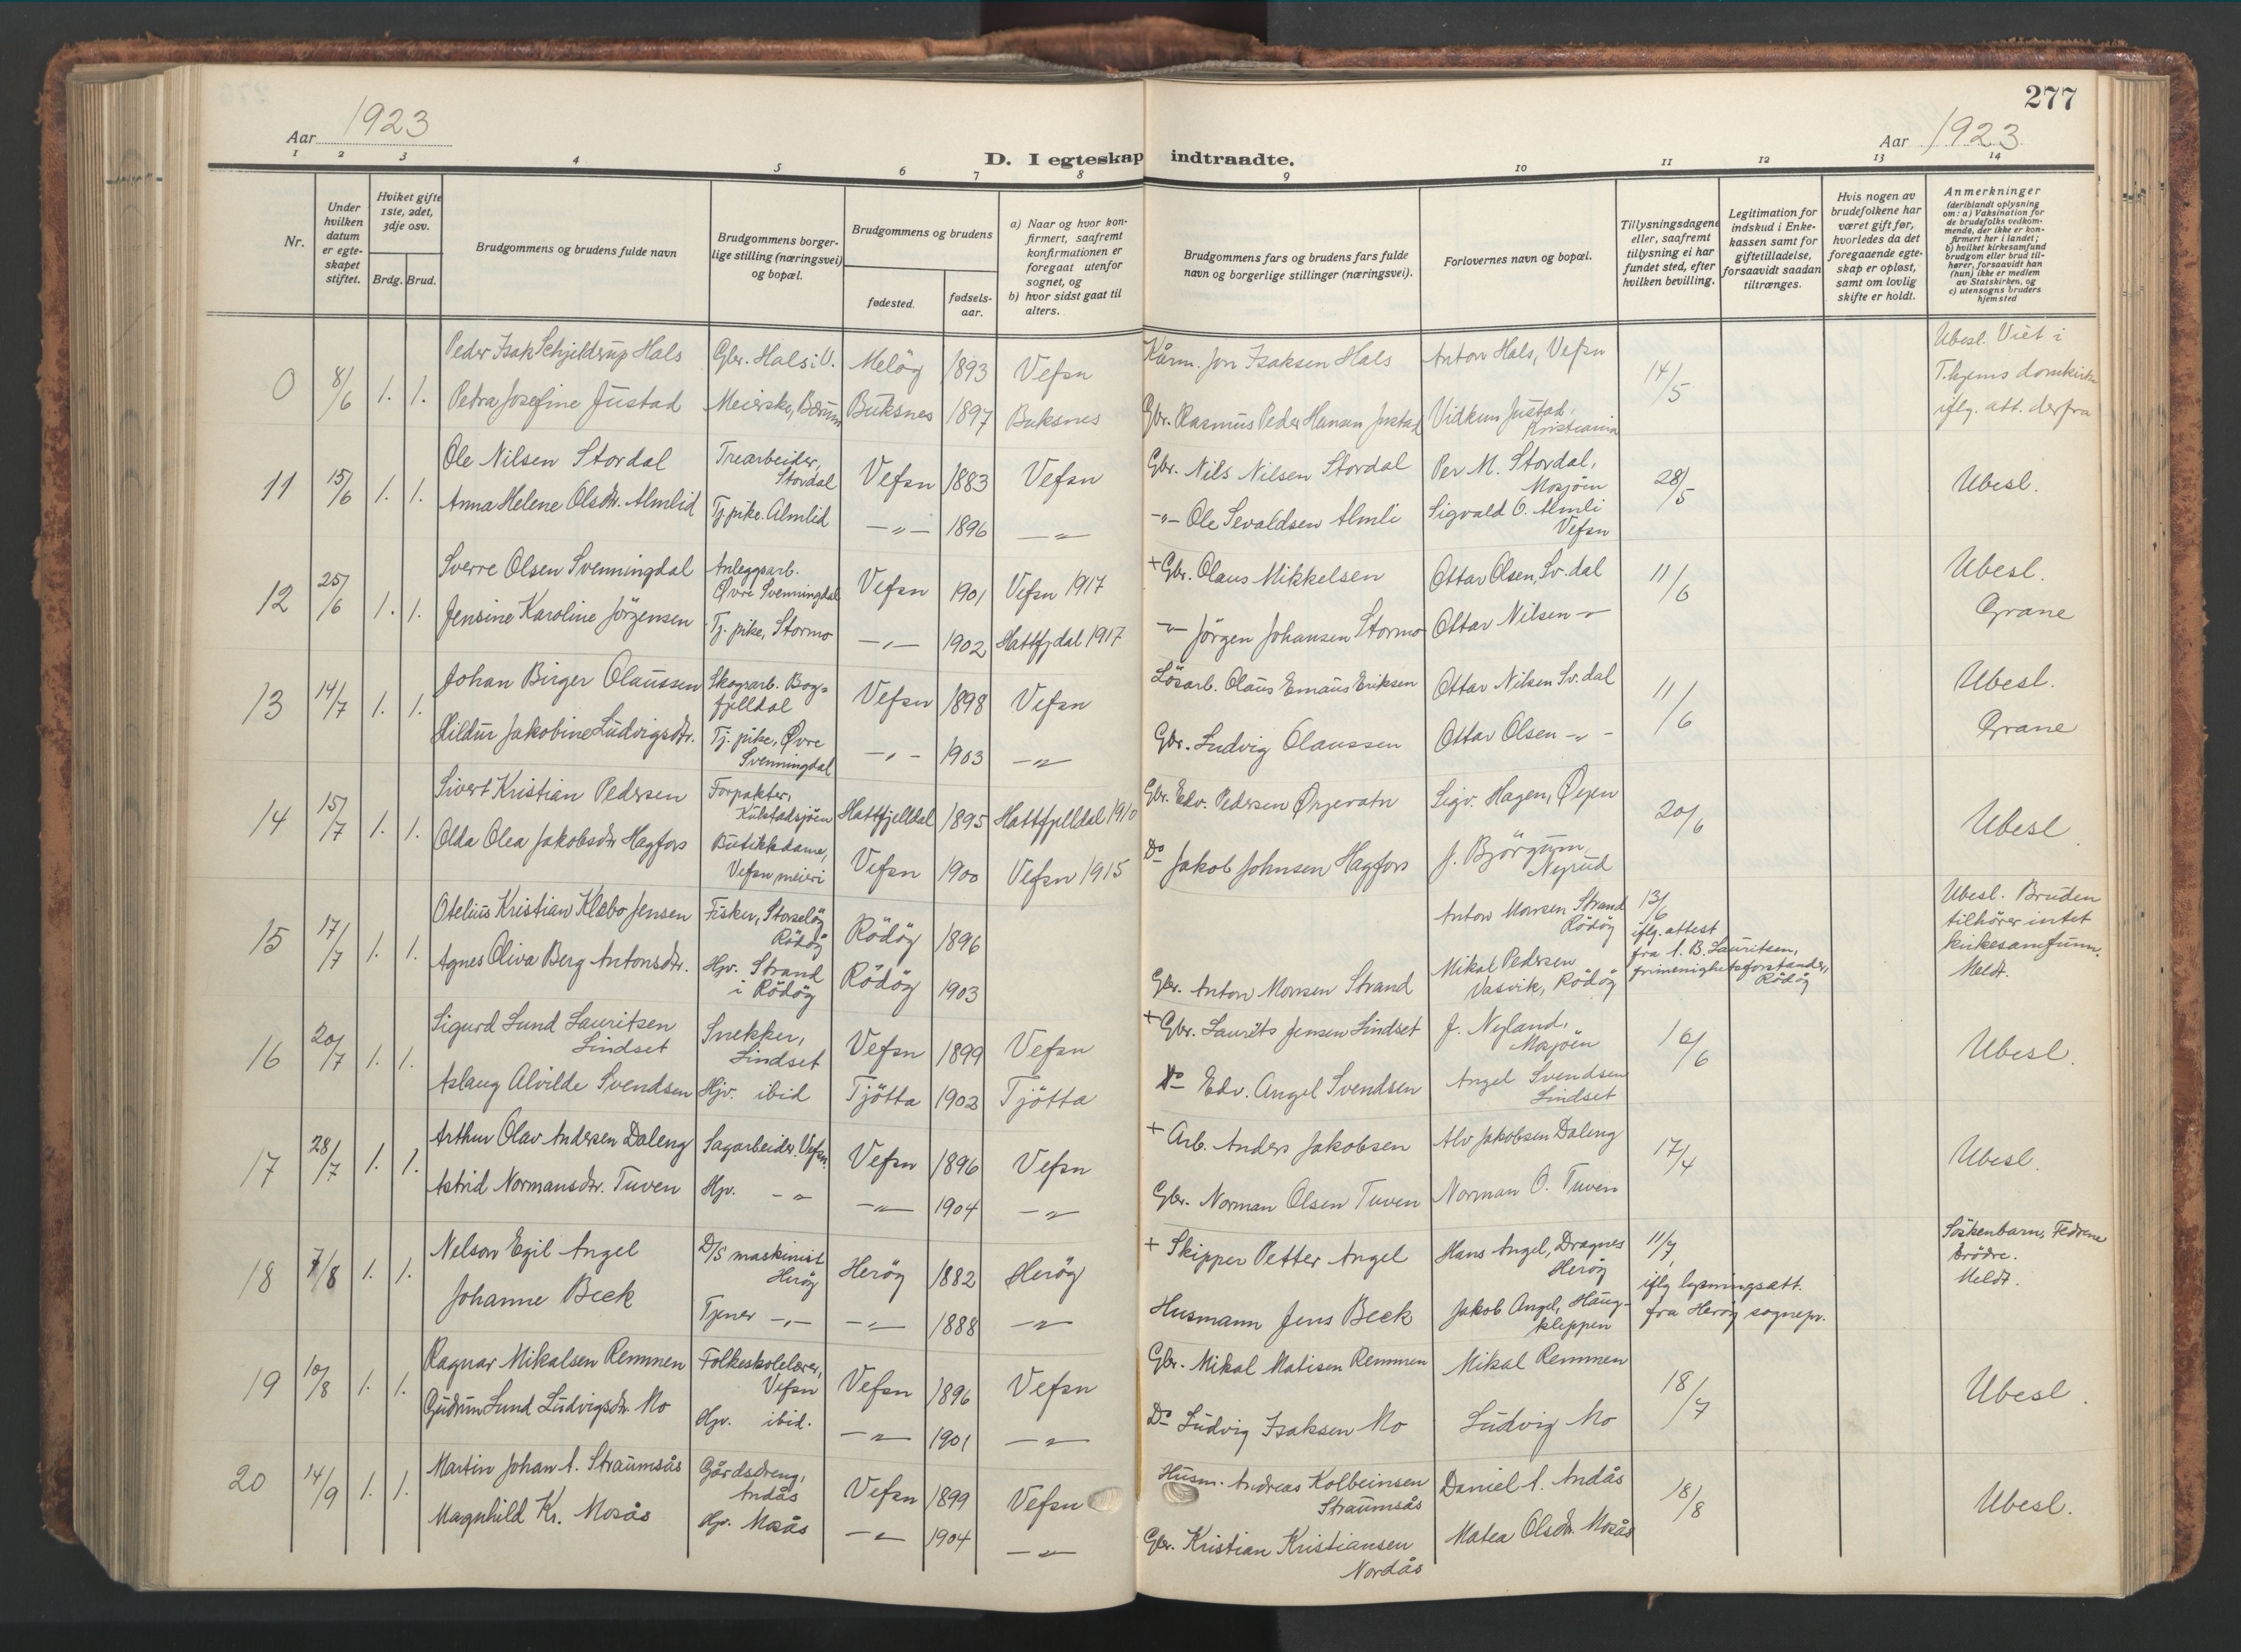 277
Aar 1923
Aar 1923
D. I egteskap indtraadte.
1 2 3 4 5 6 7 8 9 10 11 12 13 14
Nr.
Under hvilken datum er egteskapet stiftet.
Hvilket gifte 1ste, 2det, 3dje osv.
Brdg. Brud.
Brudgommens og brudens fulde navn
Brudgommens borgerlige stilling (næringsvei) og bopæl.
Brudgommens og brudens
fødested.
fødselsaar.
a) Naar og hvor konfirmert, saafremt konfirmationen er foregaat utenfor sognet, og
b) hvor sidst gaat til alters.
Brudgommens fars og brudens fars fulde navn og borgerlige stillinger (næringsvei).
Forlovernes navn og bopæl.
Tillysningsdagene eller, saafremt tillysning ei har fundet sted, efter hvilken bevilling.
Legitimation for indskud i Enkekassen samt for giftetilladelse, forsaavidt saadan tiltrænges.
Hvis nogen av brudefolkene har været gift før, hvorledes da det foregaaende egteskap er opløst, samt om lovlig skifte er holdt.
Anmerkninger (deriblandt oplysning om: a) Vaksination for de brudefolks vedkommende, der ikke er konfirmert her i landet; b) hvilket kirkesamfund brudgom eller brud tilhører, forsaavidt han (hun) ikke er medlem av Statskirken, og c) utensogns bruders hjemsted
0 8/6 1. 1. Peder Isak Schjelderup Hals Gbr. Hals i V. Meløy 1893 Vefsn Kårm. Jon Isaksen Hals Anton Hals, Vefsn 14/5 Ubesl. Viet i T.hjems domkirke iflg. att. derfra
Petra Josefine Justad Meierske, Bærum Buksnes 1897 Buksnes Gbr. Rasmus Peder Hansen Justad Vidkun Justad, Kristiania
11 15/6 1. 1. Ole Nilsen Stordal Trearbeider, Stordal Vefsn 1883 Vefsn Gbr. Nils Nilsen Stordal Per M. Stordal, Mosjøen 28/5 Ubesl.
Anna Helene Olsdtr. Almlid Tj. pike. Almlid -"- 1896 -"- -"- Ole Sevaldsen Almli Sigvald O. Almli Vefsn
12 25/6 1. 1. Sverre Olsen Svenningdal Anleggsarb. Øvre Svenningdal Vefsn 1901 Vefsn 1917 + Gbr. Olaus Mikkelsen Ottar Olsen, Sv.dal 11/6 Ubesl. Grane
Jensine Karoline Jörgensen Tj. pike, Stormo -"- 1902 Hattfjdal 1917 -"- Jörgen Johansen Stormo Ottar Nilsen -"-
13 14/7 1. 1. Johan Birger Olaussen Skogsarb. Bogfjelldal Vefsn 1898 Vefsn Lösarb. Olaus Emaus Eriksen Ottar Nilsen Sv.dal 11/6 Ubesl. Grane
Hildur Jakobine Ludvigsdtr. Tj. pike, Øvre Svenningdal -"- 1903 -"- Gbr. Ludvig Olaussen Ottar Olsen -"-
14 15/7 1. 1. Sivert Kristian Pedersen Forpakter, Kulstadsjøen Hattfjelldal 1895 Hattfjelldal 1910 Gbr. Edv. Pedersen Ørjevatn Sigv. Hagen, Øyen 20/6 Ubesl
Olda Olea Jakobsdtr Hagfors Butikkdame, Vefsn meieri Vefsn 1900 Vefsn 1915 Do Jakob Johnsen Hagfors J. Björgum, Nyrud
15 17/7 1. 1. Otelius Kristian Klæbo Jensen Fisker, Storselöy Rödöy Rödöy 1896 Anton Monsen Strand Rödöy 13/6 iflg. attest fra A. B. Lauritsen, frimenighetsforstander, Rödöy Ubesl. Bruden tilhører intet kirkesamfunn. Meldt.
Agnes Oliva Berg Antonsdtr. Hjv. Strand i Rödöy Rödöy 1903 Gbr. Anton Monsen Strand Mikal Pedersen Vasvik, Rödöy
16 20/7 1. 1. Sigurd Lund Lauritsen Lindset Snekker, Lindset Vefsn 1899 Vefsn + Gbr. Laurits Jensen Lindset J. Nyland, Mosjøen 16/6 Ubesl.
Aslaug Alvilde Svendsen Hjv. ibid Tjötta 1902 Tjötta Do Edv. Angel Svendsen Angel Svendsen Lindset
17 28/7 1. 1. Arthur Olav Andersen Daleng Sagarbeider. Vefsn. Vefsn 1896 Vefsn + Arb. Anders Jakobsen Alv Jakobsen Daleng 17/4 Ubesl.
Astrid Normansdtr. Tuven Hjv. -"- -"- 1904 -"- Gbr. Norman Olsen Tuven Norman O. Tuven
18 7/8 1. 1. Nelson Egil Angel D/S maskinist Heröy Heröy 1882 Heröy + Skipper Petter Angel Hans Angel, Dragnes Heröy 11/7, iflg lysningsatt. fra Heröy sognepr. Söskenbarn, Fedrene brödre. Meldt.
Johanne Beck Tjener -"- -"- 1888 -"- Husmann Jens Beck Jakob Angel, Haugkleppen
19 10/8 1. 1. Ragnar Mikalsen Remmen Folkeskolelærer, Vefsn Vefsn 1896 Vefsn Gbr. Mikal Matisen Remmen Mikal Remmen 18/7 Ubesl.
Gudrun Lund Ludvigsdtr. Mo Hjv. ibid. -"- 1901 -"- Do Ludvig Isaksen Mo Ludvig Mo
20 14/9 1. 1. Martin Johan A. Straumsås Gårdsdreng, Andås Vefsn 1899 Vefsn Husm. Andreas Kolbeinsen Straumsås Daniel A. Andås 18/8 Ubesl.
Magnhild Kr. Mosås Hjv. Mosås -"- 1904 -"- Gbr. Kristian Kristiansen Nordås Matea Olsdtr. Mosås